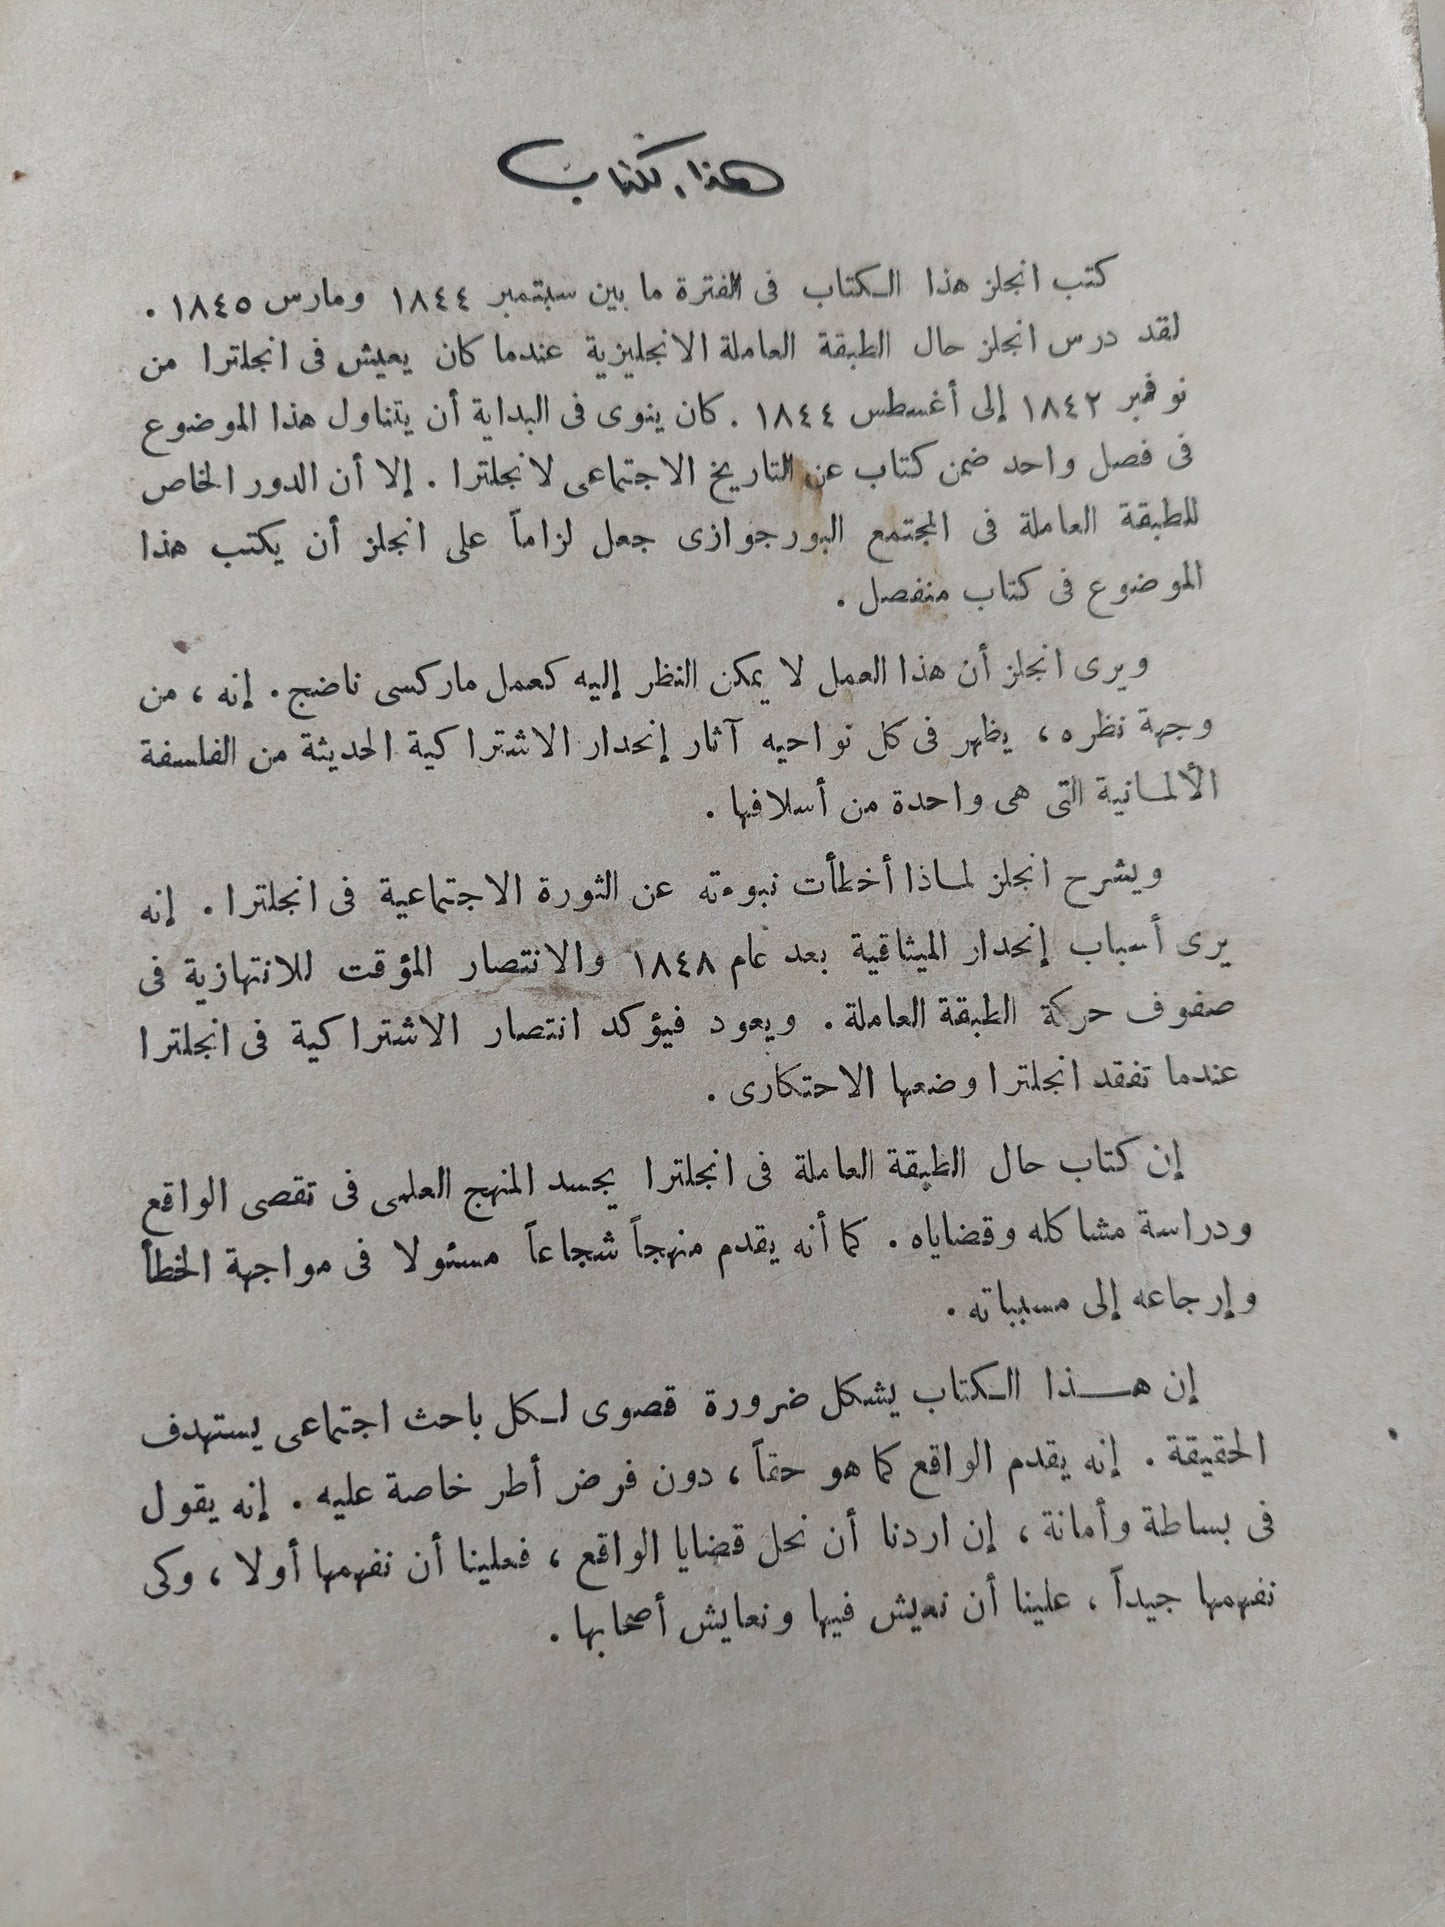 هذا الكتاب
كتب انجلز هذا الكتاب فى الفترة ما بين سبتمبر ١٨٤٤ ومارس ١٨٤٥ .
لقد درس انجلز حال الطبقة العاملة الانجليزية عندما كان يعيش فى انجلترا من
نوفمبر ١٨٤٢ إلى أغسطس ١٨٤٤ . كان ينوى فى البداية أن يتناول هذا الموضوع
فى فصل واحد ضمن كتاب عن التاريخ الاجتماعى لانجلترا . إلا أن الدور الخاص
للطبقة العاملة فى المجتمع البورجوازى جعل لزاماً على انجلز أن يكتب هذا
الموضوع فى كتاب منفصل .
ويرى انجلز أن هذا العمل لا يمكن النظر إليه كعمل ماركسى ناضج . إنه ، من
وجهة نظره ، يظهر فى كل نواحيه آثار إنحدار الاشتراكية الحديثة من الفلسفة
الألمانية التى هى واحدة من أسلافها .
ويشرح انجلز لماذا أخطأت نبوءته عن الثورة الاجتماعية فى انجلترا . إنه
يرى أسباب إنحدار الميثاقية بعد عام ١٨٤٨ والانتصار المؤقت للانتهازية فى
صفوف حركة الطبقة العاملة . ويعود فيؤكد انتصار الاشتراكية فى انجلترا
عندما تفقد انجلترا وضعها الاحتكارى .
إن كتاب حال الطبقة العاملة فى انجلترا يجسد المنهج العلمى فى تقصى الواقع
ودراسة مشاكله وقضاياه . كما أنه يقدم منهجاً شجاعاً مسئولا فى مواجهة الخطأ
وإرجاعه إلى مسبباته .
إن هذا الكتاب يشكل ضرورة قصوى لكل باحث اجتماعى يستهدف
الحقيقة . إنه يقدم الواقع كما هو حقاً ، دون فرض أطر خاصة عليه . إنه يقول
فى بساطة وأمانة ، إن اردنا أن نحل قضايا الواقع ، فعلينا أن نفهمها أولا ، وكى
نفهمها جيداً ، علينا أن نعيش فيها ونعايش أصحابها .